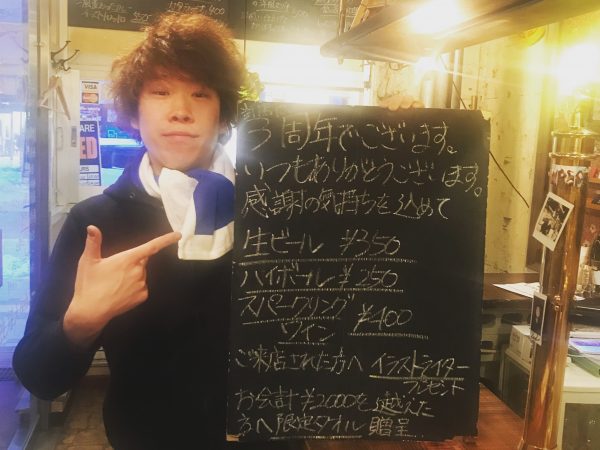 VISA
¥400
3周年でございます。
いつもありがとうございます。
感謝の気持ちを込めて
生ビール ¥350
ハイボール ¥250
スパークリング
ワイン ¥400
ご来店された方へ イラストライター
プレゼント
お会計¥2000を越えた
方へ限定タオル贈呈